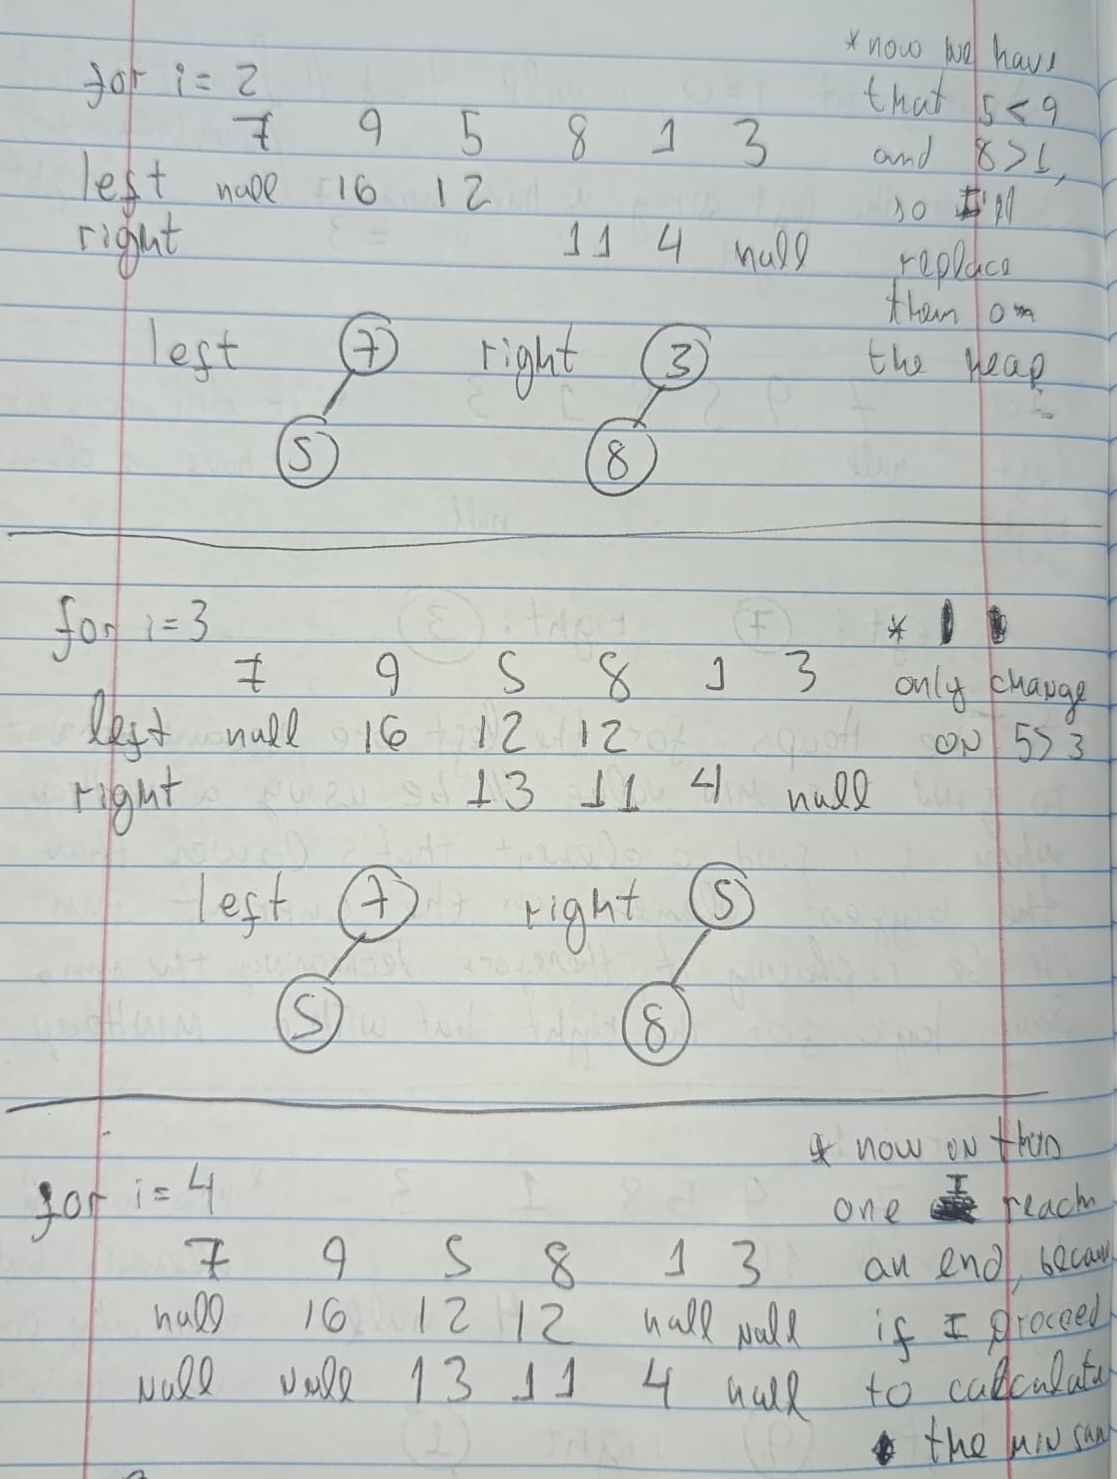 for i = 2
7 9 5 8 1 3
left null 16 12
right 11 4 null
* now we have
that 5 < 9
and 8 > 1,
so I'll
replace
them on
the heap
left 7 right 3
5 8
for i = 3
7 9 5 8 1 3
left null 16 12 12
right 13 11 4 null
*
only change
ON 5 > 3
left 7 right 5
5 8
for i = 4
7 9 5 8 1 3
null 16 12 12 null null
null null 13 11 4 null
* now ON this
one I reach
an end, becau
if I proceed
to calculate
the MIN sum